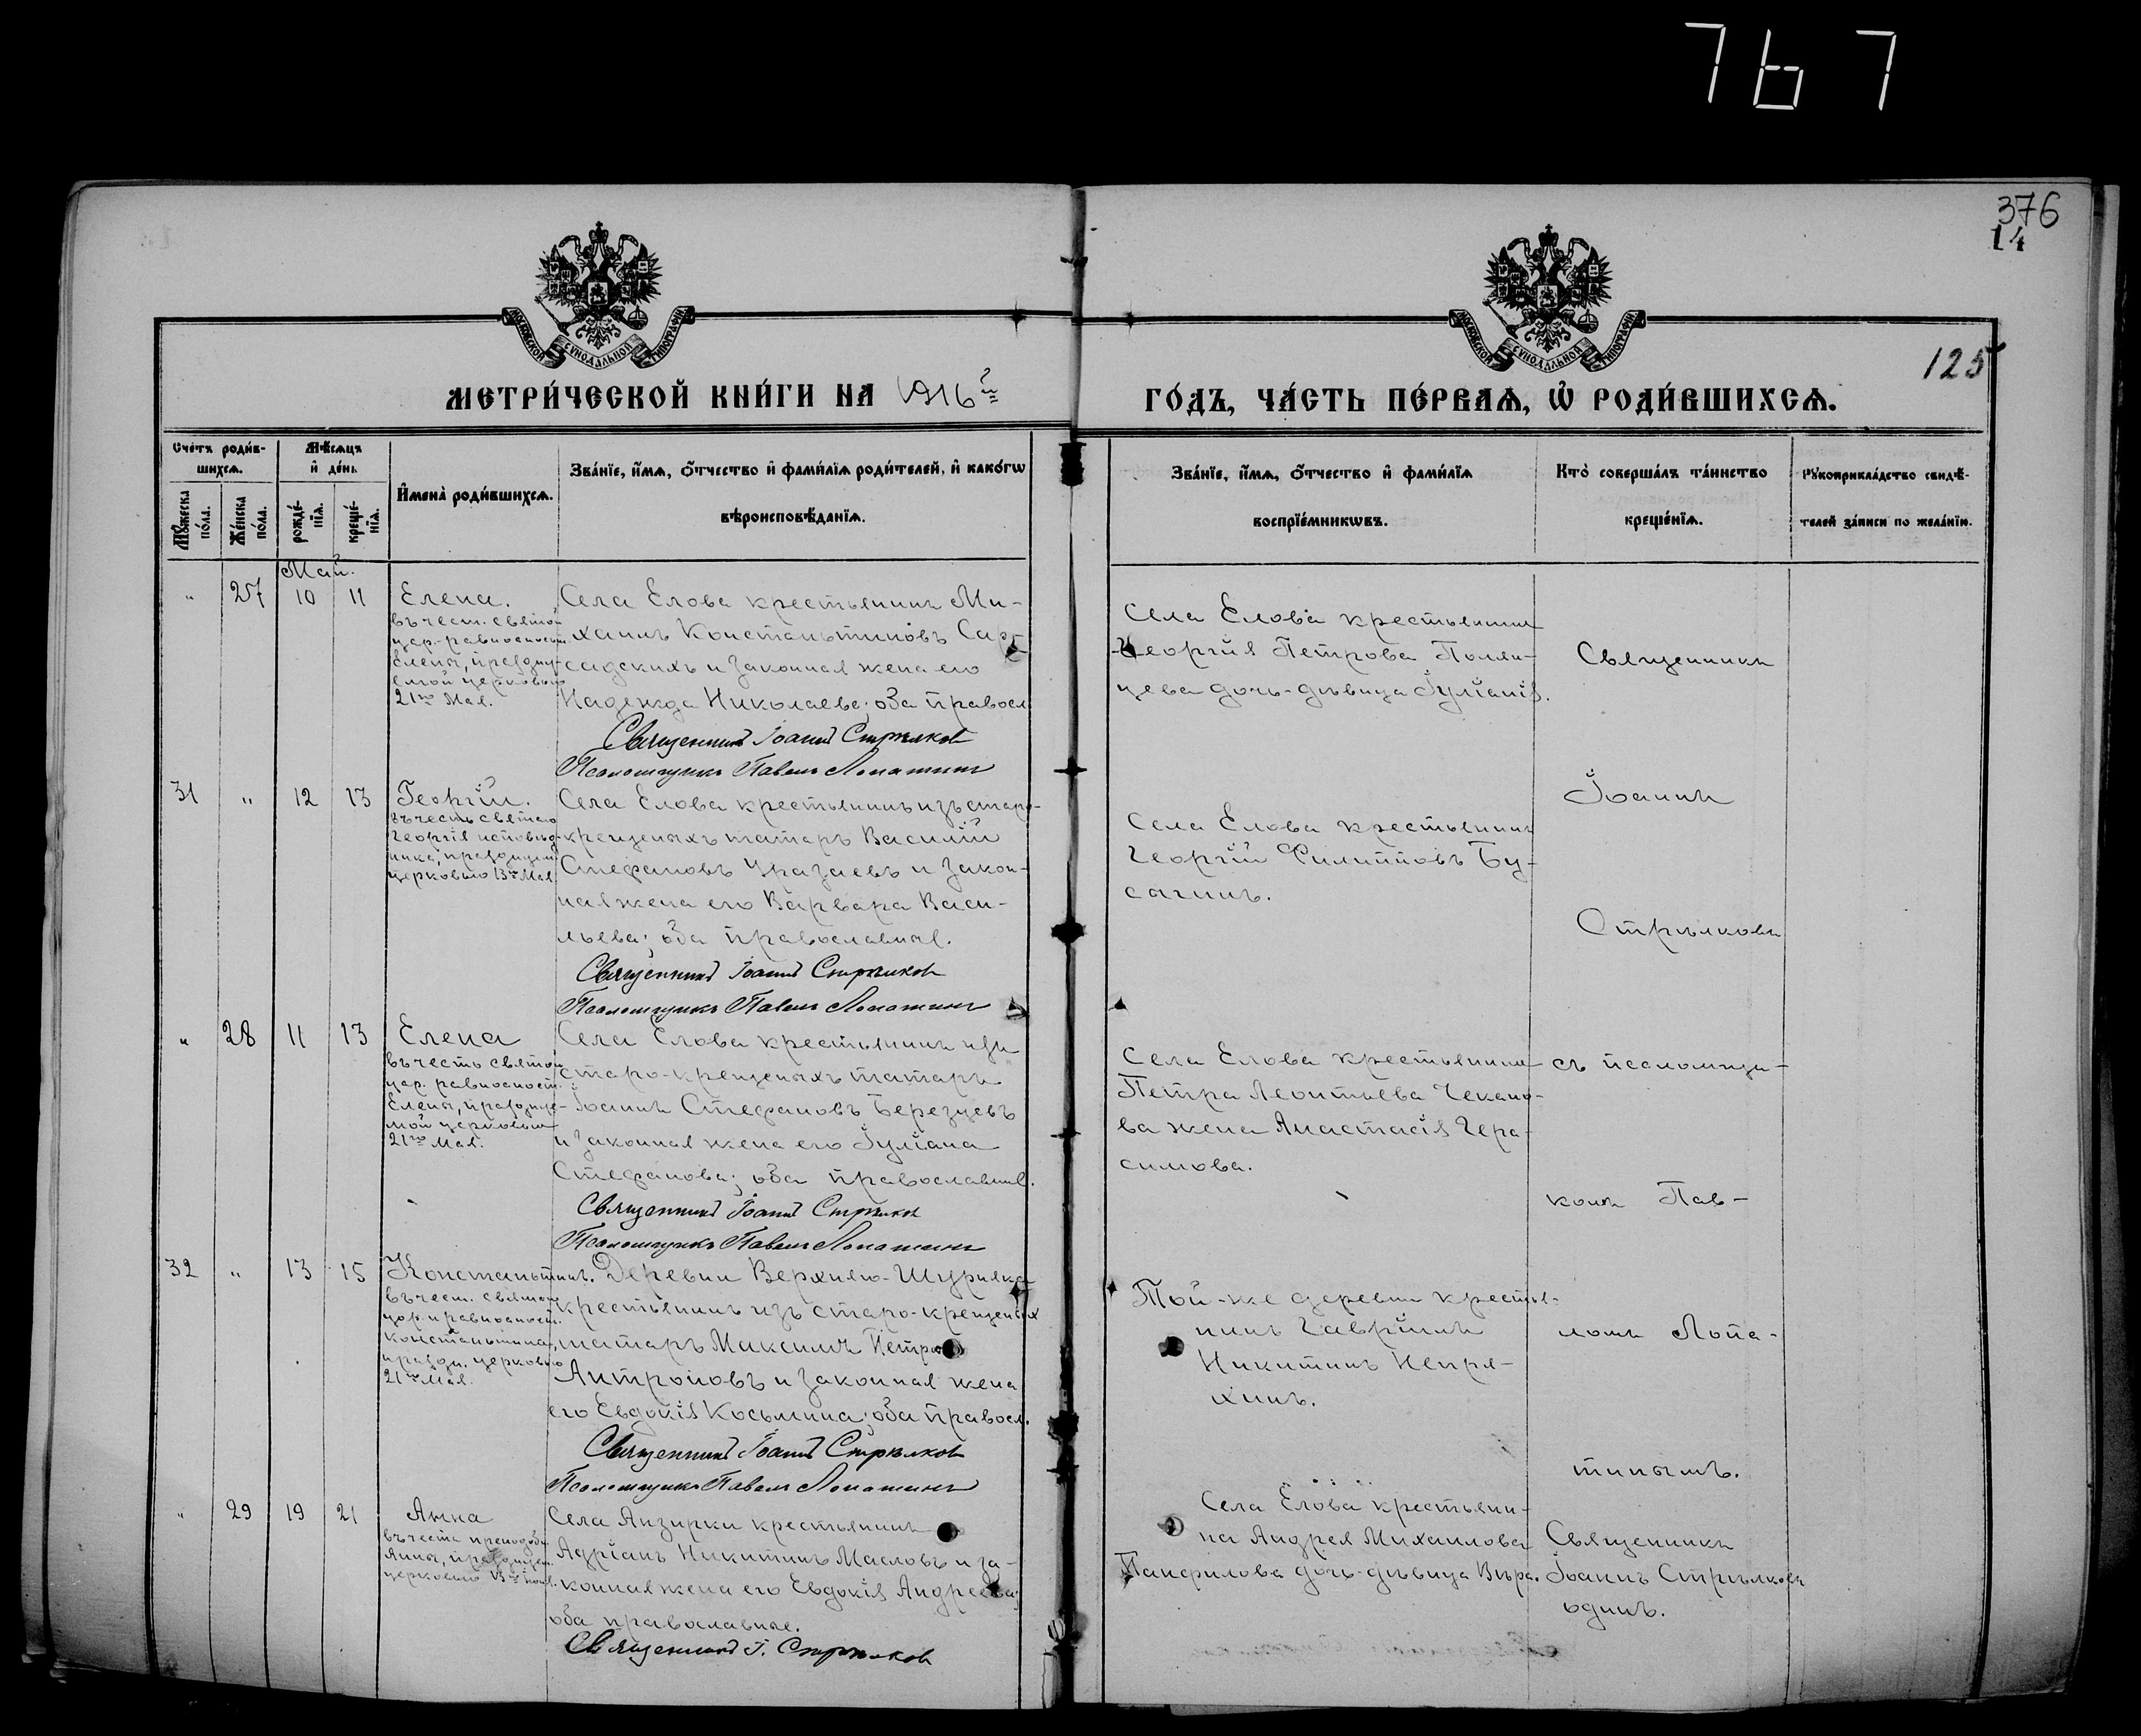 767
376
14
125
МОСКОВСКОЙ СѴНОДАЛЬНОЙ ТИПОГРАФІИ
МОСКОВСКОЙ СѴНОДАЛЬНОЙ ТИПОГРАФІИ
МЕТРИ́ЧЕСКОЙ КНИ́ГИ НА 1916й
ГО́ДЪ, ЧА́СТЬ ПЕ́РВАѦ, Ѡ҆ РОДИ́ВШИХСѦ.
Счетъ роди́в-
шихсѧ.
Мꙋ́жеска по́ла.
Же́нска по́ла.
Мѣ́сѧцъ
и҆ де́нь.
рожде́-
нїѧ.
креще́-
нїѧ.
И҆мена̀ роди́вшихсѧ.
Зва́нїе, и҆́мѧ, ѻ҆́тчество и҆ фами́лїѧ роди́телей, и҆ како́гѡ
вѣроисповѣ́данїѧ.
Зва́нїе, и҆́мѧ, ѻ҆́тчество и҆ фами́лїѧ
воспрїе́мникѡвъ.
Кто̀ соверша́лъ та́инство
креще́нїѧ.
Рꙋкоприкла́дство свидѣ́-
телей за́писи по жела́нїю.
Май.
" 27 10 11
Елена.
въ чест. святой
цар. равноапост.
Елены, празднуе-
емой церковью
21го Мая.
Села Елова крестьянинъ Ми-
хаилъ Константиновъ Сар-
садскихъ и законная жена его
Надежда Николаева; оба правосл.
Священникъ Іоаннъ Стрѣлковъ
Псаломщикъ Павелъ Лопатинъ
Села Елова крестьянина
Георгія Петрова Поля-
цева дочь-дѣвица Іуліанія.
31 " 12 13
Георгій.
въ честь святаго
Георгія исповѣд-
ника, празднуем.
церковью 13го Мая
Села Елова крестьянинъ изъ старо-
крещеныхъ татаръ Василій
Стефановъ Указаевъ и закон-
ная жена его Варвара Васи-
льева; оба православныя.
Священникъ Іоаннъ Стрѣлковъ
Псаломщикъ Павелъ Лопатинъ
Села Елова крестьянинъ
Георгій Филипповъ Бу-
сагинъ.
" 28 11 13
Елена
въ честь святой
цар. равноапост.
Елены, празднуе-
мой церковью
21го Мая.
Села Елова крестьянинъ изъ
старо-крещеныхъ татаръ
Іоаннъ Стефановъ Березуевъ
и законная жена его Іуліана
Стефанова; оба православныя.
Священникъ Іоаннъ Стрѣлковъ
Псаломщикъ Павелъ Лопатинъ
Села Елова крестьянина
Петра Леонтьева Чекано-
ва жена Анастасія Гера-
симова.
32 " 13 15
Константинъ.
въ чест. святаго
цар. и равноапост.
Константина,
праздн. церковью
21го Мая.
Деревни Верхняго-Шурняка
крестьянинъ изъ старо-крещеныхъ
татаръ Максимъ Петровъ
Антроповъ и законная жена
его Евдокія Косьмина; оба правосл.
Священникъ Іоаннъ Стрѣлковъ
Псаломщикъ Павелъ Лопатинъ
Той-же деревни крестья-
нинъ Гавріилъ
Никитинъ Непря-
хинъ.
" 29 19 21
Анна
въ честь преподобн.
Анны, празднуем.
церковью 13го Іюня.
Села Анзирки крестьянинъ
Адріанъ Никитинъ Масловъ и за-
конная жена его Евдокія Андреева;
оба православные.
Священникъ І. Стрѣлковъ
Села Елова крестьяни-
на Андрея Михаилова
Панфилова дочь-дѣвица Вѣра.
Священникъ
Іоаннъ
Стрѣлковъ
съ псаломщи-
комъ Пав-
ломъ Лопа-
тинымъ.
Священникъ
Іоаннъ Стрѣлковъ
одинъ.